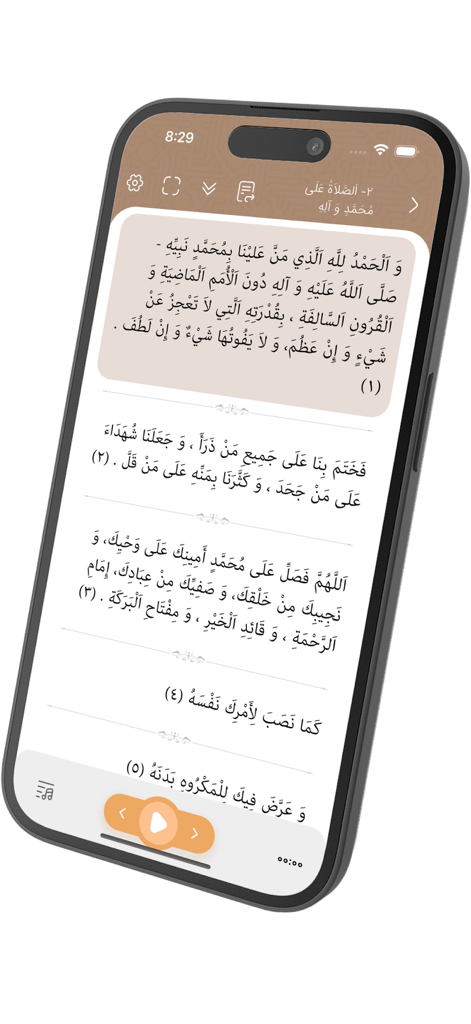 8:29
٢- اَلصَّلاَةُ عَلَى
مُحَمَّدٍ وَ آلِهِ
وَ اَلْحَمْدُ لِلَّهِ اَلَّذِي مَنَّ عَلَيْنَا بِمُحَمَّدٍ نَبِيِّهِ -
صَلَّى اَللَّهُ عَلَيْهِ وَ آلِهِ دُونَ اَلْأُمَمِ اَلْمَاضِيَةِ وَ
اَلْقُرُونِ اَلسَّالِفَةِ ، بِقُدْرَتِهِ اَلَّتِي لاَ تَعْجِزُ عَنْ
شَيْءٍ وَ إِنْ عَظُمَ، وَ لاَ يَفُوتُهَا شَيْءٌ وَ إِنْ لَطُفَ .
(١)
فَخَتَمَ بِنَا عَلَى جَمِيعِ مَنْ ذَرَأَ ، وَ جَعَلَنَا شُهَدَاءَ
عَلَى مَنْ جَحَدَ ، وَ كَثَّرَنَا بِمَنِّهِ عَلَى مَنْ قَلَّ . (٢)
اَللَّهُمَّ فَصَلِّ عَلَى مُحَمَّدٍ أَمِينِكَ عَلَى وَحْيِكَ، وَ
نَجِيبِكَ مِنْ خَلْقِكَ، وَ صَفِيِّكَ مِنْ عِبَادِكَ، إِمَامِ
اَلرَّحْمَةِ ، وَ قَائِدِ اَلْخَيْرِ ، وَ مِفْتَاحِ اَلْبَرَكَةِ . (٣)
كَمَا نَصَبَ لِأَمْرِكَ نَفْسَهُ (٤)
وَ عَرَّضَ فِيكَ لِلْمَكْرُوهِ بَدَنَهُ (٥)
٠٠:٠٠